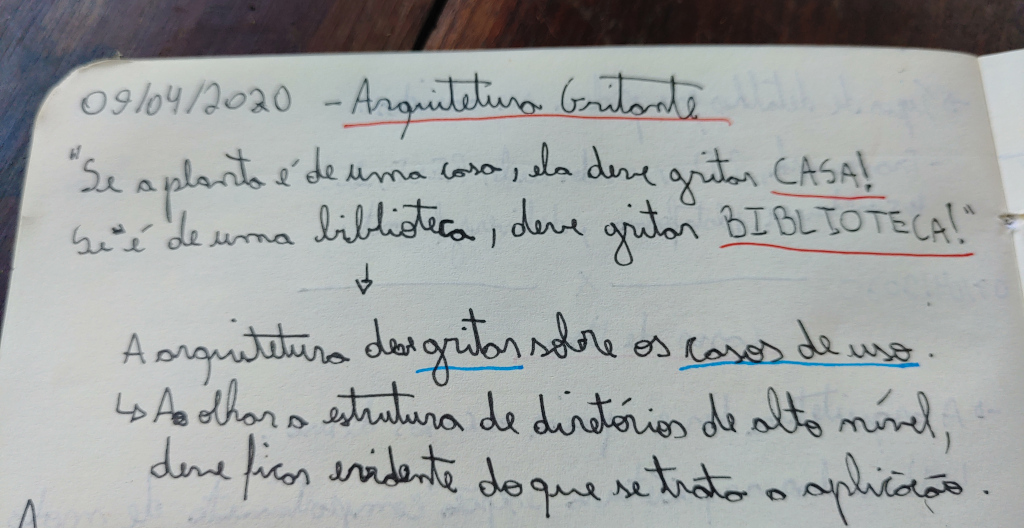 09/04/2020 - Arquitetura Gritante
"Se a planta é de uma casa, ela deve gritar CASA!
Se é de uma biblioteca, deve gritar BIBLIOTECA!"
↓
A arquitetura deve gritar sobre os casos de uso.
↳ Ao olhar a estrutura de diretórios de alto nível,
deve ficar evidente do que se trata a aplicação.
A